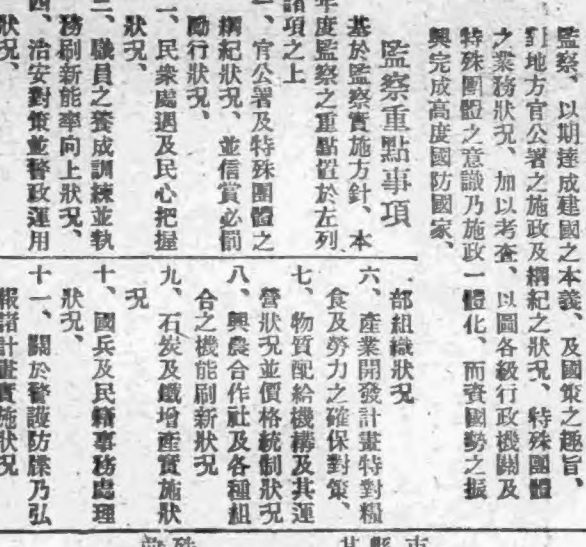 監察、以期達成建國之本義、及國策之趣旨、
對地方官公署之施政及綱紀之狀況、特殊團體
之業務狀況、加以考查、以圖各級行政機關及
特殊團體之意識乃施政一體化、而資國勢之振
興完成高度國防國家、
監察重點事項
基於監察實施方針、本
年度監察之重點置於左列
諸項之上
一、官公署及特殊團體之
綱紀狀況、並信賞必罰
勵行狀況、
二、民衆處遇及民心把握
狀況、
三、職員之養成訓練並執
務刷新能率向上狀況、
四、治安對策並警政運用
狀況、
部組織狀況
六、產業開發計畫特對糧
食及勞力之確保對策、
七、物質配給機構及其運
營狀況並價格統制狀況
八、興農合作社及各種組
合之機能刷新狀況
九、石炭及鐵增產實施狀
況
十、國兵及民籍事務處理
狀況、
十一、關於警護防牒乃弘
報諸計畫實施狀況